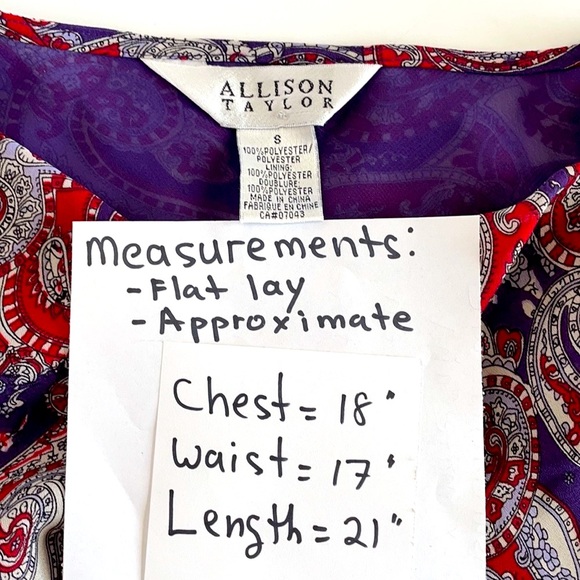 ALLISON
TAYLOR
S
100%POLYESTER/
POLYESTER
LINING:
100%POLYESTER
DOUBLURE:
100%POLYESTER
MADE IN CHINA
FABRIQUE EN CHINE
CA#07043
Measurements:
- Flat lay
- Approximate
Chest = 18"
Waist = 17"
Length = 21"